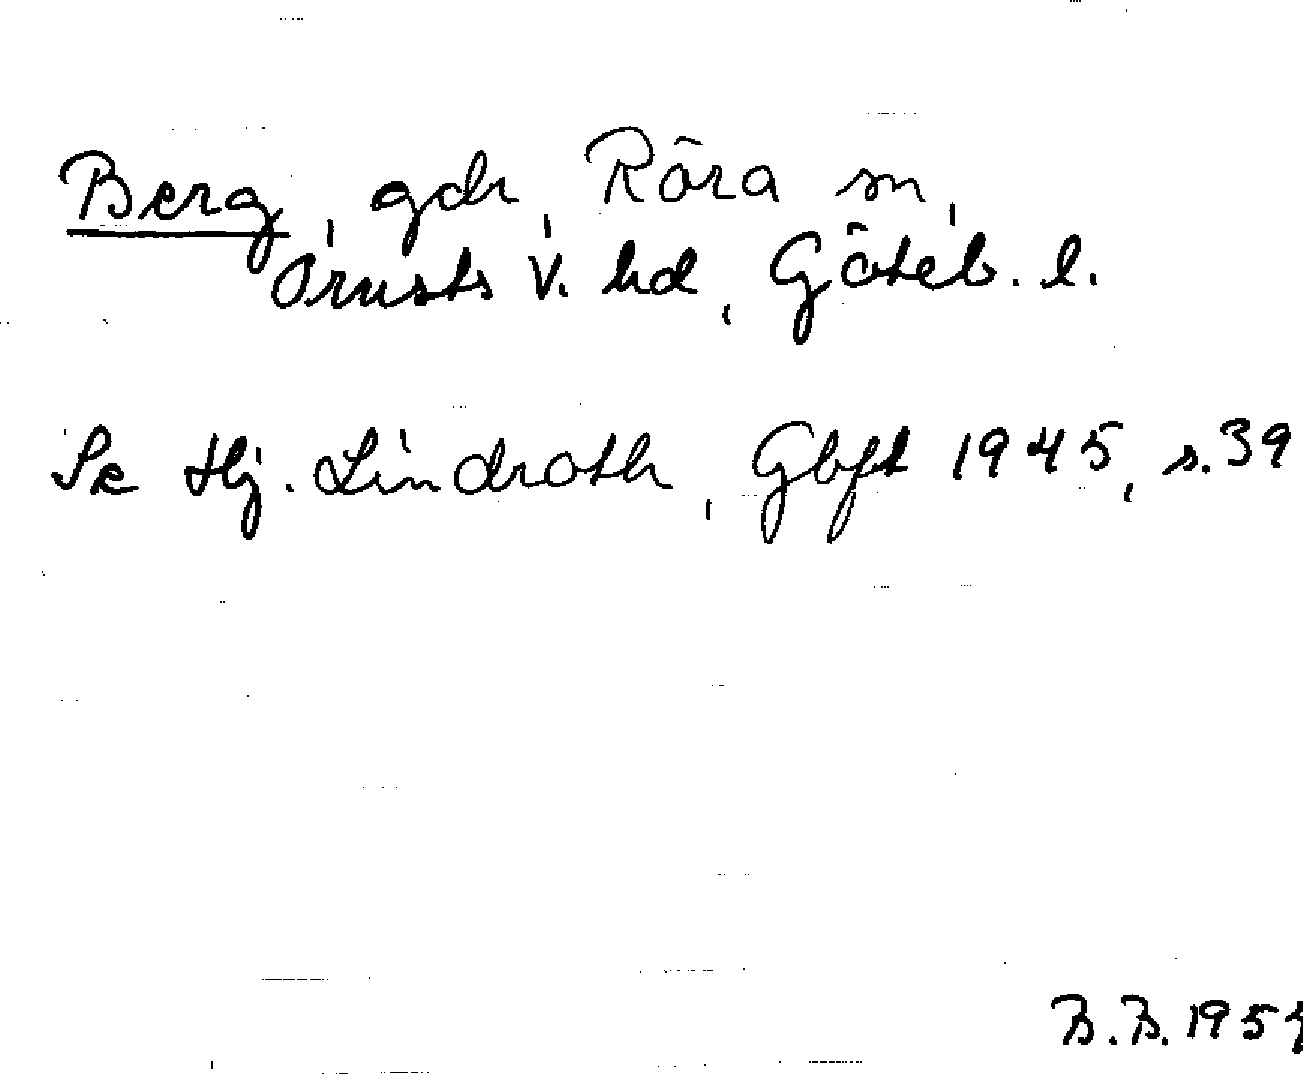 Berg, gdr, Röra sn,
Orusts V. hd, Göteb. l.
Se Hj. Lindroth, Gbft 1945, s. 39
B.B.